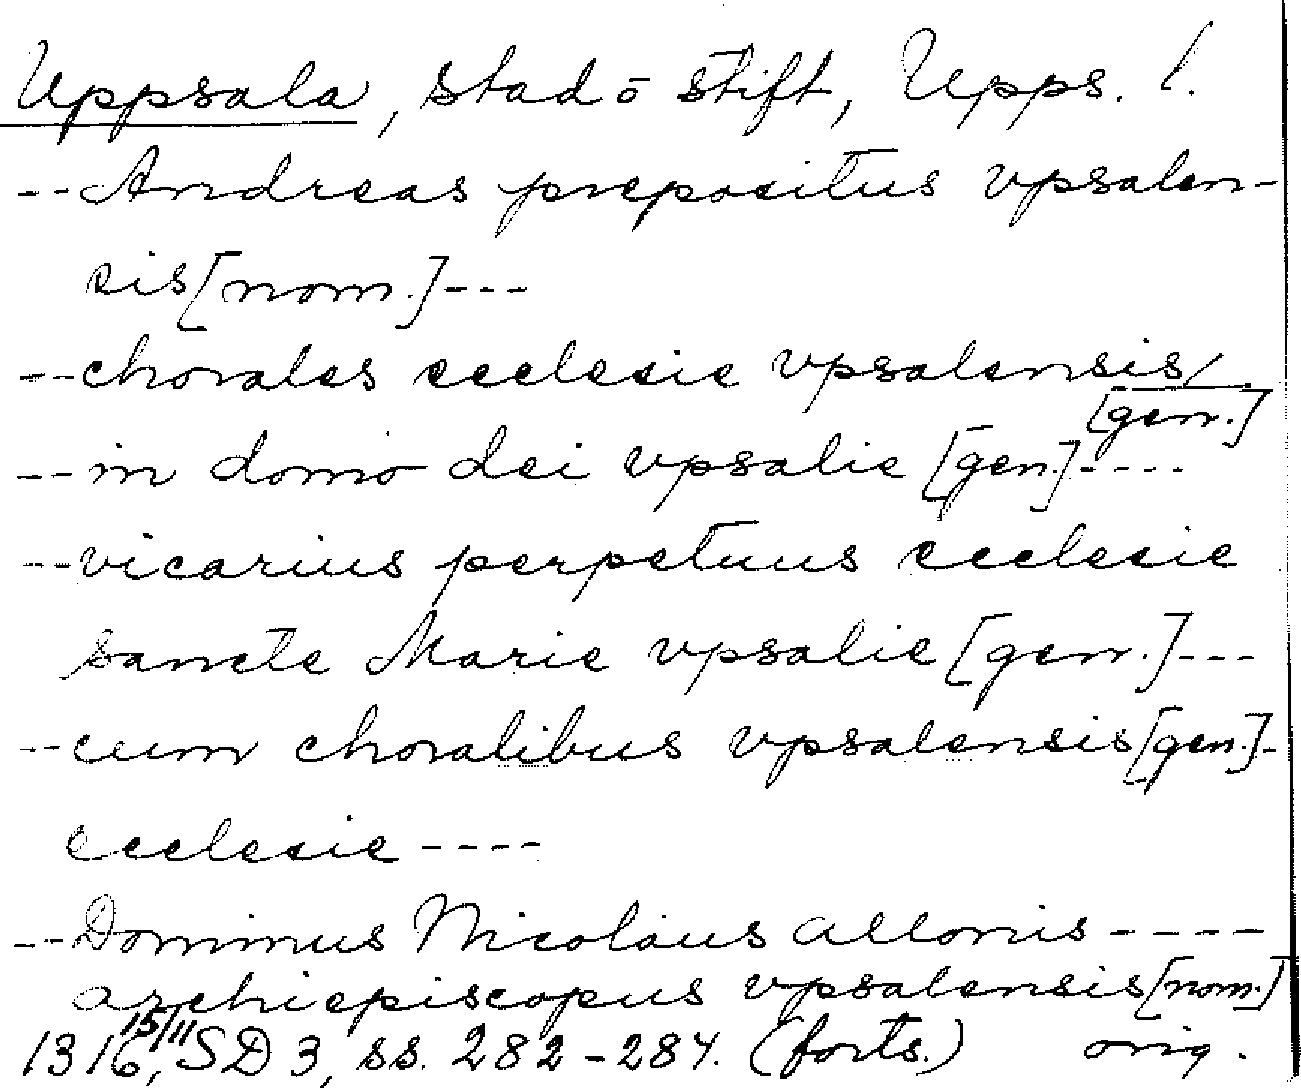 Uppsala, stad o stift, Upps. l.
-- Andreas prepositus vpsalen-
sis [nom.] ---
-- chorales ecclesie vpsalensis/
[gen.]
-- in domo dei vpsalie [gen.] ----
-- vicarius perpetuus ecclesie
sancte Marie vpsalie [gen.] ---
-- cum choralibus vpsalensis [gen.] -
ecclesie ----
-- Dominus Nicolaus allonis ----
archiepiscopus vpsalensis [nom.]
1316 15/11, SD 3, ss. 282-284. (forts.) orig.